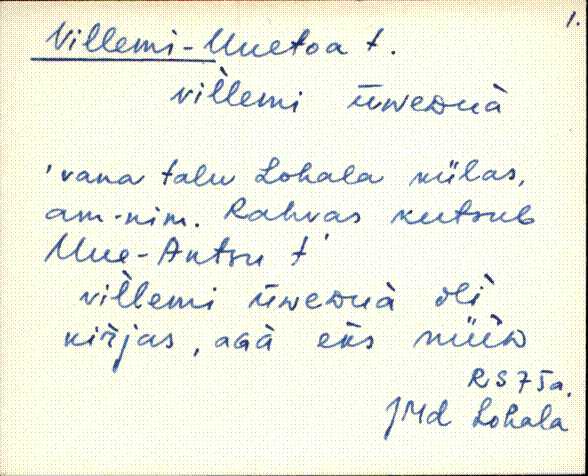 1.
Villemi-Uuetoa t.
vìllemi ūweᴅuà
'vana talu Lohala külas,
am-nim. Rahvas kutsub
Uue-Antsu t'
vìllemi ūweᴅuà olì
kirjas, aGà eks nüüᴅ
RS 75a.
JMd Lohala